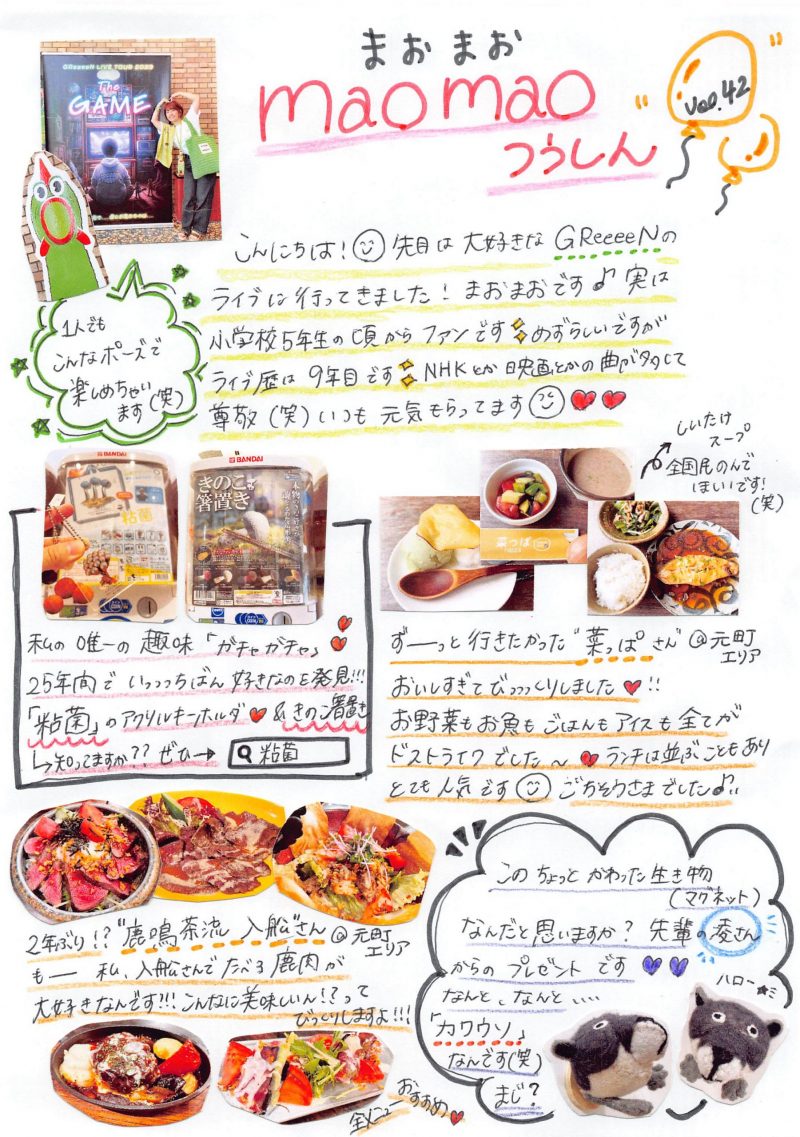 まおまお
maomao
つうしん
Vol.42
GReeeeN LIVE TOUR 2023
The
GAME
こんにちは！先日は大好きなGReeeeNの
ライブに行ってきました！まおまおです♪実は
小学校5年生の頃からファンです めずらしいですが
ライブ歴は9年目です NHKとか映画とかの曲バタクして
尊敬(笑)いつも元気もらってます
1人でも
こんなポーズで
楽しめちゃい
ます(笑)
BANDAI
粘菌
BANDAI
きのこ
箸置き
私の唯一の趣味「ガチャガチャ」
25年間でいっっっちばん好きなのを発見!!!
「粘菌」のアクリルキーホルダ&きのこ箸置き
↳知ってますか??ぜひ→ 粘菌
しいたけ
スープ
全国民のんで
ほしいです!
(笑)
菜っぱ
ずーっと行きたかった"菜っぱさん"@元町
エリア
おいしすぎてびっっっくりしました!!
お野菜もお魚もごはんもアイスも全てが
ドストライクでした〜 ランチは並ぶこともあり
とても人気です ごちそうさまでした♪!!
2年ぶり!?"鹿鳴茶流 入舩"さん@元町
エリア
もー 私、入舩さんでたべる鹿肉が
大好きなんです!!!こんなに美味しいん!?って
びっくりしますよ!!!
全メニューおすすめ
このちょっとかわった生き物
(マグネット)
なんだと思いますか？先輩の凌さん
からのプレゼントです
なんと、なんと、、、、
「カワウソ」
なんです(笑)
まじ？
ハロー